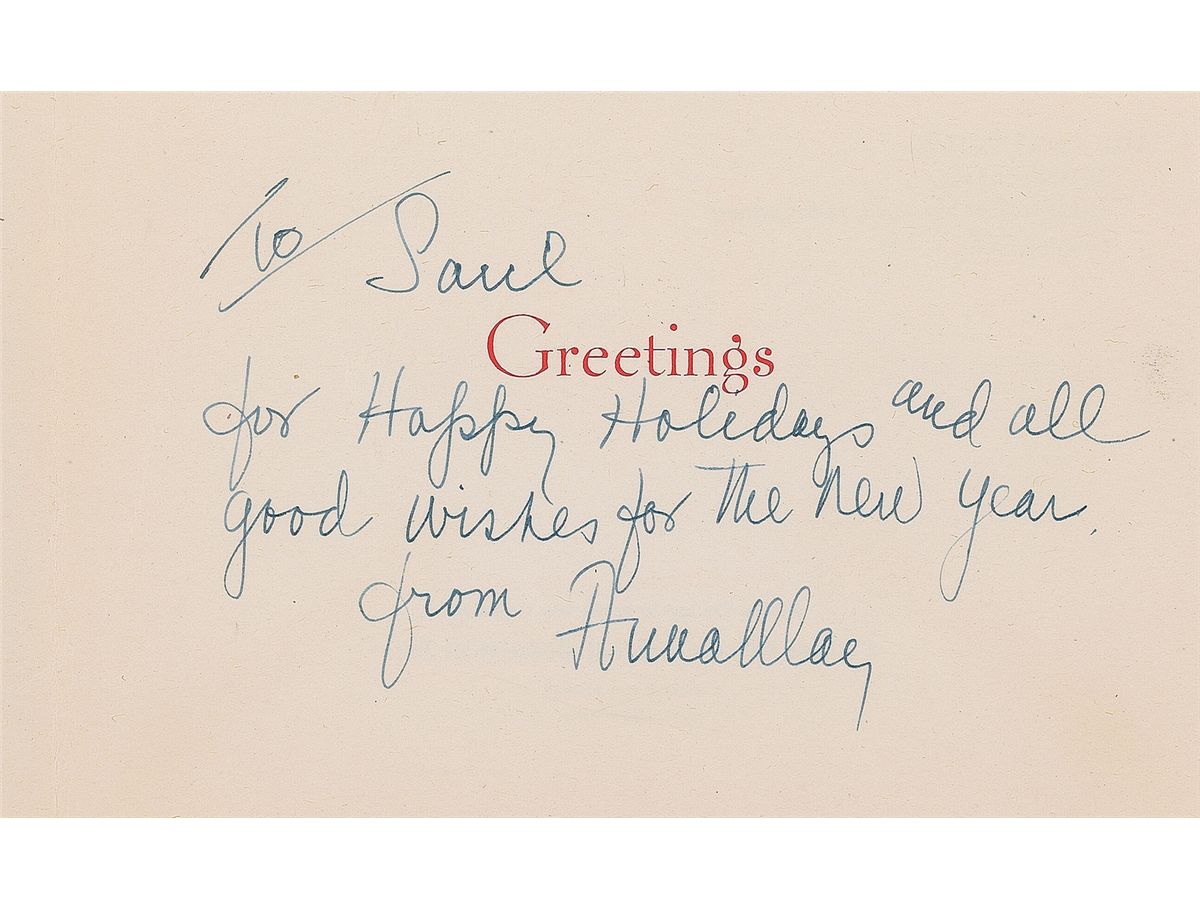 To Saul
Greetings
for Happy Holidays and all
good wishes for The New Year.
from Anna May